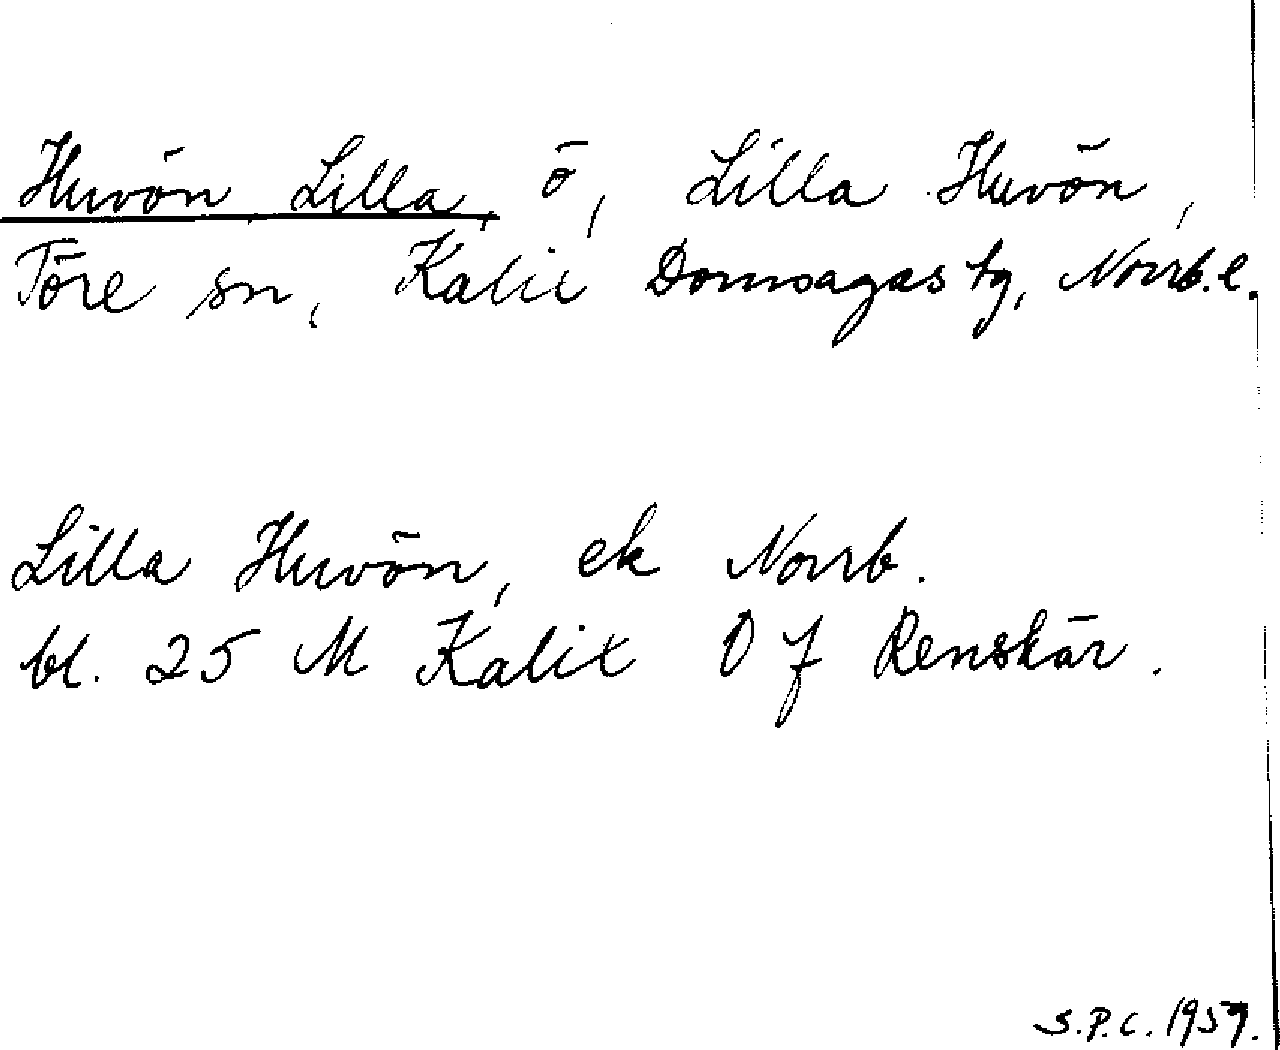 Huvön, Lilla, ö, Lilla Huvön,
Töre sn, Kalix Domsagas tg, Norrb. l.
Lilla Huvön, ek Norrb.
bl. 25 M Kalix O f Renskär.
S.P.C. 1959.